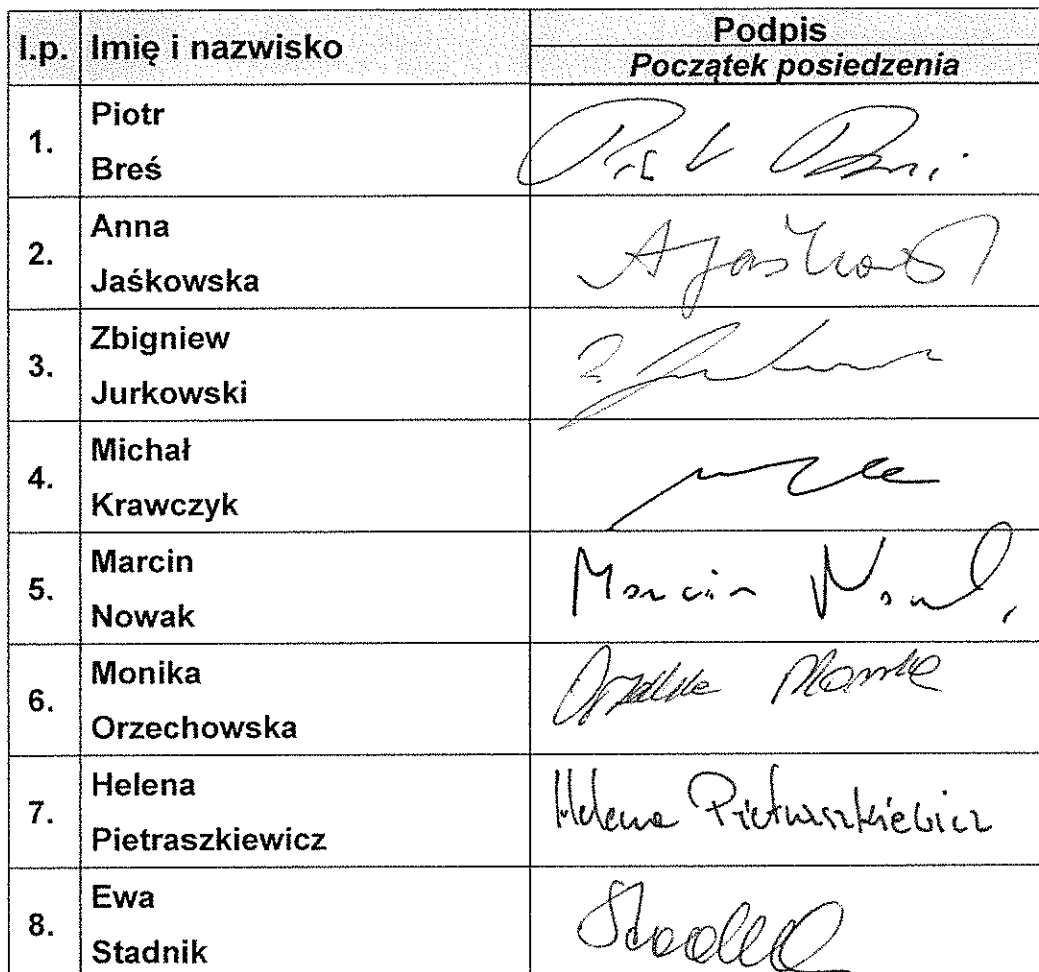 l.p. Imię i nazwisko Podpis
Początek posiedzenia
1. Piotr
Breś
2. Anna
Jaśkowska
A Jaśkows
3. Zbigniew
Jurkowski
4. Michał
Krawczyk
5. Marcin
Nowak
Marcin Nowak
6. Monika
Orzechowska
7. Helena
Pietraszkiewicz
Helena Pietraszkiewicz
8. Ewa
Stadnik